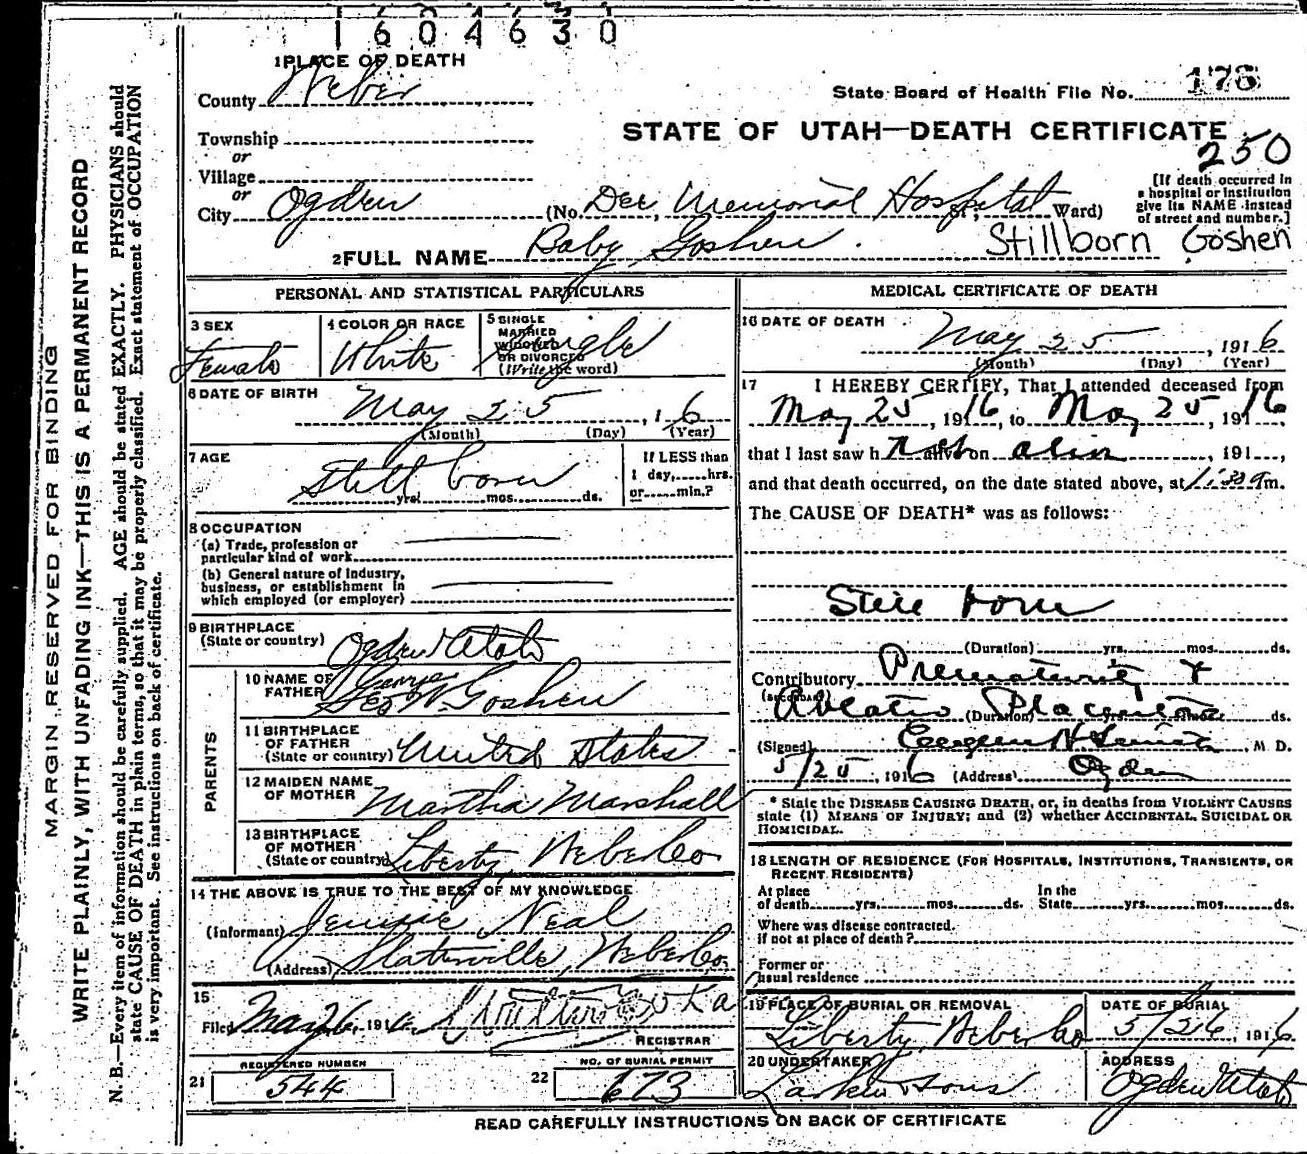 1604630
1 PLACE OF DEATH
County Weber
State Board of Health File No. 178
STATE OF UTAH—DEATH CERTIFICATE
250
Township
or
Village
or
City Ogden (No. Dee Memorial Hospital St., Ward)
[If death occurred in
a hospital or institution
give its NAME instead
of street and number.]
2 FULL NAME Baby Goshen. Stillborn Goshen
PERSONAL AND STATISTICAL PARTICULARS
3 SEX
Female
4 COLOR OR RACE
White
5 SINGLE
MARRIED
WIDOWED
OR DIVORCED
(Write the word)
Single
6 DATE OF BIRTH
May 25, 1 6
(Month) (Day) (Year)
7 AGE
Still born
yrs. mos. ds.
If LESS than
1 day, hrs.
or min.?
8 OCCUPATION
(a) Trade, profession or
particular kind of work
(b) General nature of industry,
business, or establishment in
which employed (or employer)
9 BIRTHPLACE
(State or country) Ogden Utah
PARENTS
10 NAME OF
FATHER George
Geo W Goshen
11 BIRTHPLACE
OF FATHER
(State or country) United States
12 MAIDEN NAME
OF MOTHER Martha Marshall
13 BIRTHPLACE
OF MOTHER
(State or country) Liberty, Weber Co
14 THE ABOVE IS TRUE TO THE BEST OF MY KNOWLEDGE
(Informant) Jennie Neal
(Address) Slaterville, Weber Co.
15
Filed May 26, 1916
REGISTRAR
REGISTERED NUMBER
21 544
NO. OF BURIAL PERMIT
22 673
MEDICAL CERTIFICATE OF DEATH
16 DATE OF DEATH
May 25, 1916
(Month) (Day) (Year)
17 I HEREBY CERTIFY, That I attended deceased from
May 25, 1916, to May 25, 1916,
that I last saw h alive on, 191,
and that death occurred, on the date stated above, at m.
The CAUSE OF DEATH* was as follows:
Still born
(Duration) yrs. mos. ds.
Contributory Prematurity &
(SECONDARY)
Ablatio Placentae
(Duration) yrs. mos. ds.
(Signed) M. D.
5/25, 1916 (Address) Ogden
* State the DISEASE CAUSING DEATH, or, in deaths from VIOLENT CAUSES
state (1) MEANS OF INJURY; and (2) whether ACCIDENTAL, SUICIDAL OR
HOMICIDAL.
18 LENGTH OF RESIDENCE (FOR HOSPITALS, INSTITUTIONS, TRANSIENTS, OR
RECENT RESIDENTS)
At place
of death yrs. mos. ds.
In the
State yrs. mos. ds.
Where was disease contracted,
if not at place of death?
Former or
usual residence
19 PLACE OF BURIAL OR REMOVAL
Liberty, Weber Co
DATE OF BURIAL
5/26, 1916
20 UNDERTAKER
Larkin & Sons
ADDRESS
Ogden Utah
READ CAREFULLY INSTRUCTIONS ON BACK OF CERTIFICATE
MARGIN RESERVED FOR BINDING
WRITE PLAINLY, WITH UNFADING INK—THIS IS A PERMANENT RECORD
N. B.—Every item of information should be carefully supplied. AGE should be stated EXACTLY. PHYSICIANS should
state CAUSE OF DEATH in plain terms, so that it may be properly classified. Exact statement of OCCUPATION
is very important. See instructions on back of certificate.